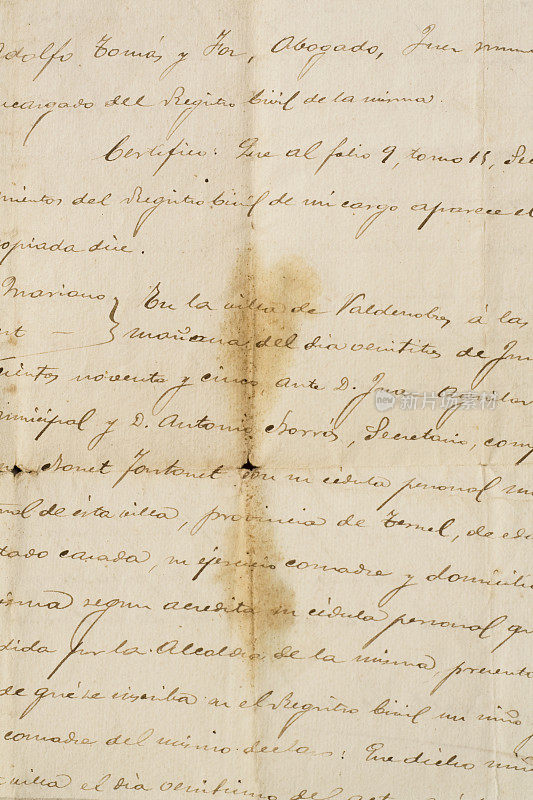 Adolfo Tomás y For, Abogado, Juez muni
ncargado del Registro Civil de la misma.
Certifico: Que al folio 9, tomo 15, Sec
mientos del Registro Civil de mi cargo aparece el
opiada dice.
Mariano } En la villa de Valderrobres á las
nt — mañana del dia veintitres de Jun
cientos noventa y cinco, ante D. Juan Aguilar
unicipal y D. Antonio Borrás, Secretario, comp
Bonet Fontanet con mi cédula personal
ral de ésta villa, provincia de Teruel, de eda
tado casada, su ejercicio comadre y domicilia
misma segun acredita su cédula personal qu
dida por la Alcaldia de la misma, presento
de que se inscriba en el Registro Civil un niño
comadre del mismo declaro: Que dicho niño
villa el dia veintiuno del
iStock